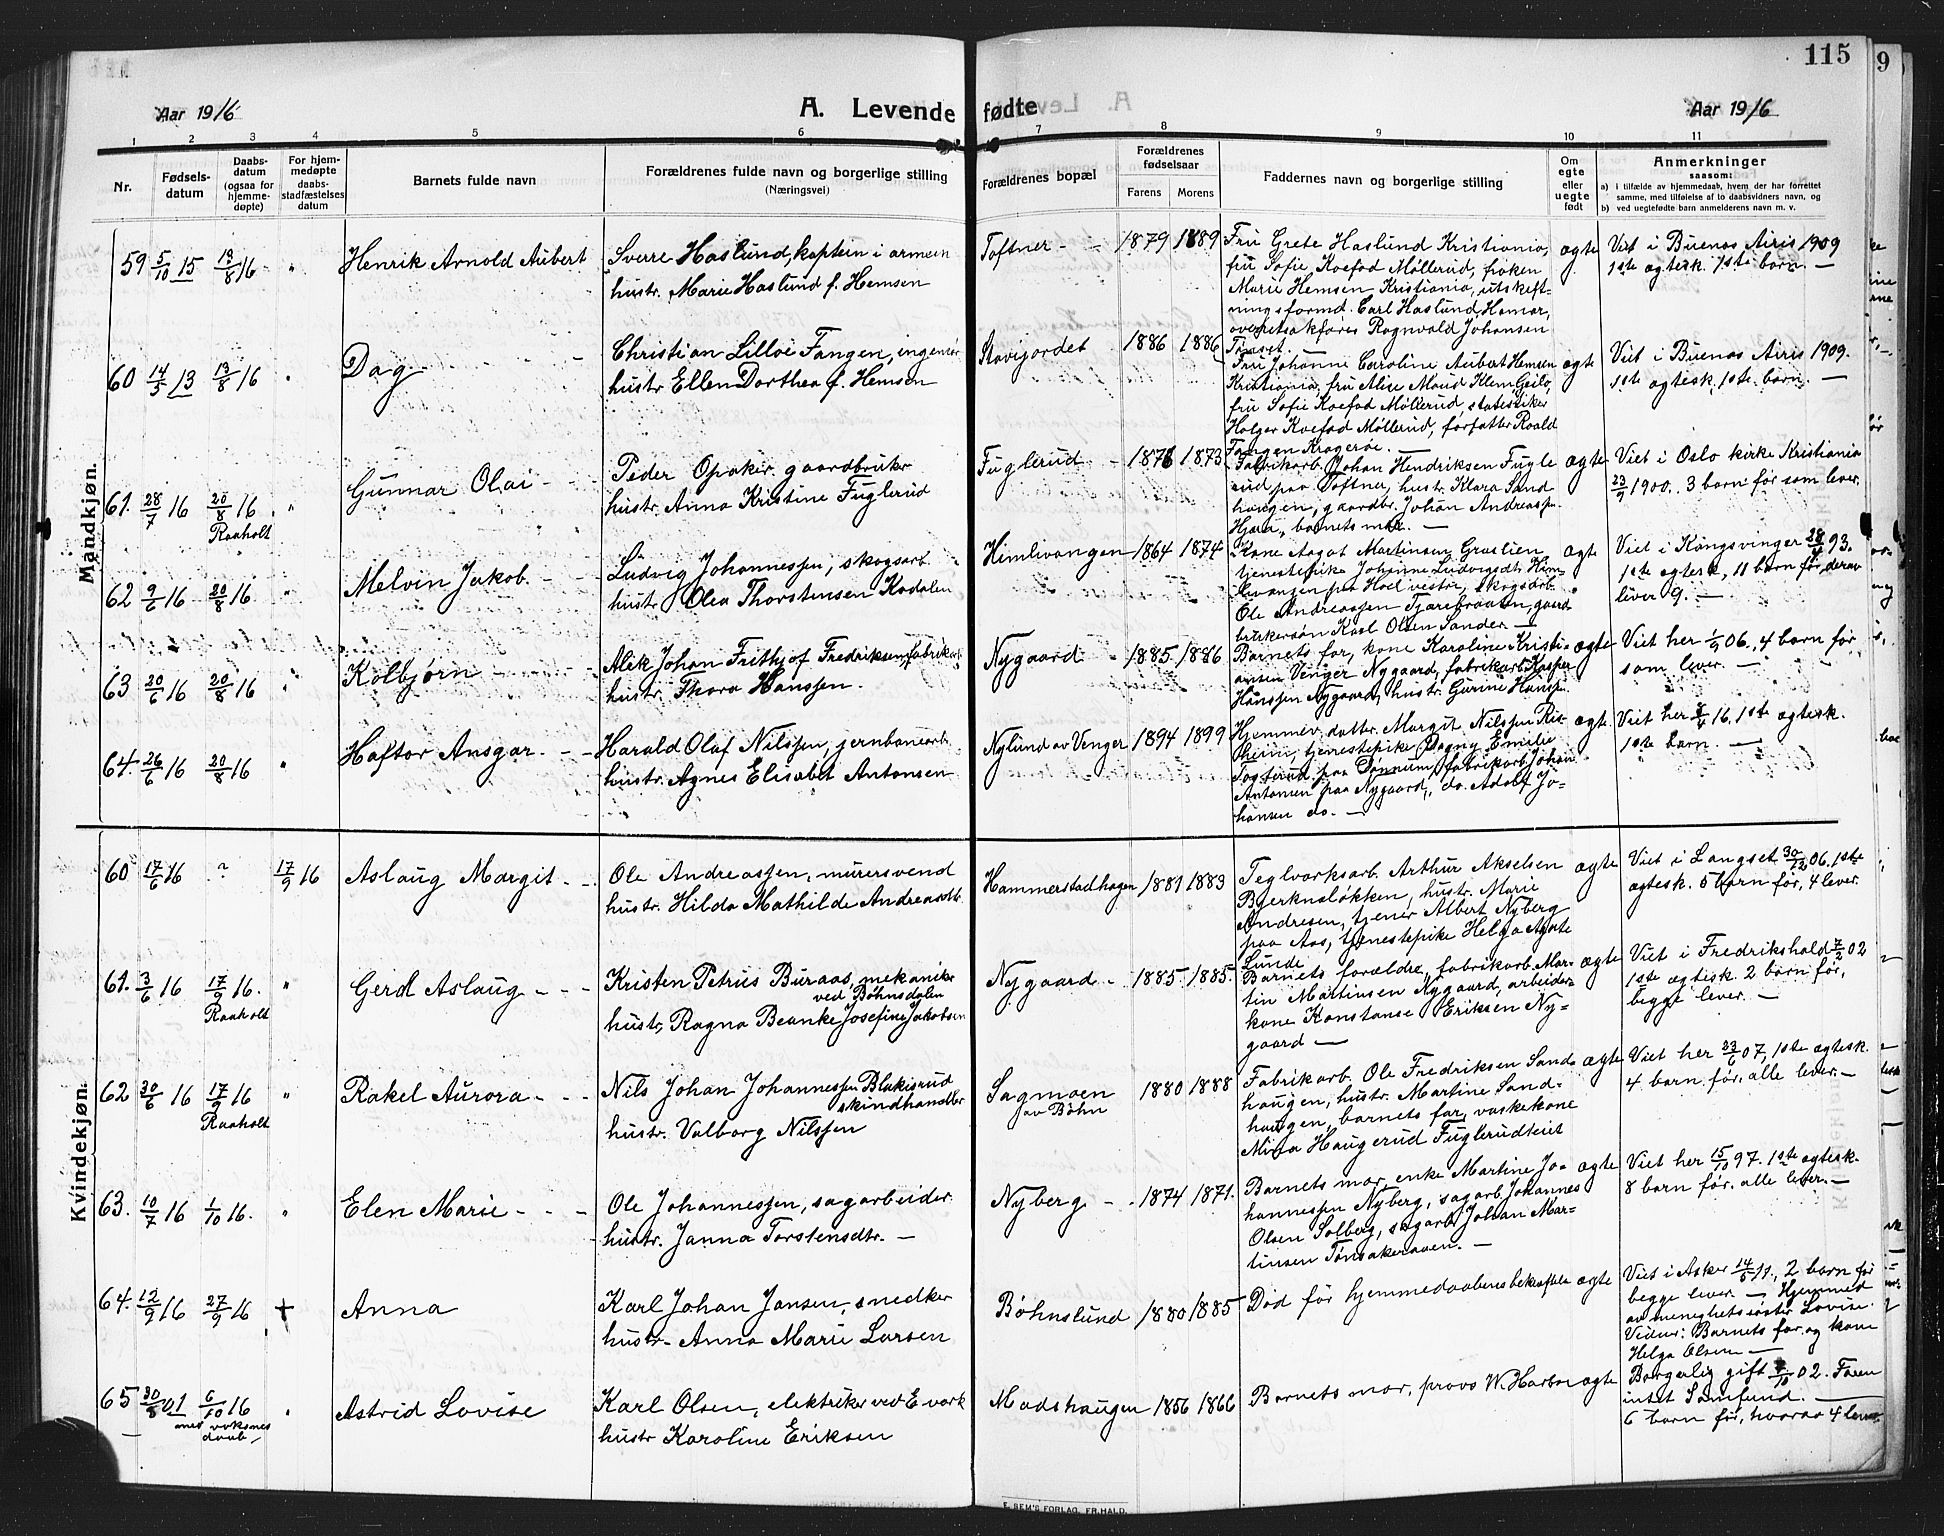 115
9
Aar 1916
A. Levende fødte
Aar 1916
1 2 3 4 5 6 7 8 9 10 11
Nr.
Fødsels-
datum
Daabs-
datum
(ogsaa for
hjemme-
døpte)
For hjem-
medøpte
daabs-
stadfæstelses
datum
Barnets fulde navn
Forældrenes fulde navn og borgerlige stilling
(Næringsvei)
Forældrenes bopæl
Forældrenes
fødselsaar
Farens Morens
Faddernes navn og borgerlige stilling
Om
egte
eller
uegte
født
Anmerkninger
saasom:
a) i tilfælde av hjemmedaab, hvem der har forrettet
samme, med tilføielse af to daabsvidners navn, og
b) ved uegtefødte barn anmelderens navn m. v.
Mandkjøn.
59 5/10 15 13/8 16 "
Henrik Arnold Aubert
Sverre Haslund, kaptein i armeen
hustr. Marie Haslund f. Hemsen
Toftner - -
1879 1889
Fru Grete Haslund Kristiania,
fru Sofie Koefod Møllerud, frøken
Marie Hemsen Kristiania, utskift-
ningsformd. Carl Haslund, Hamar,
overretsakfører Ragnvald Johansen
egte
Viet i Buenos Airis 1909
1ste egtesk. 1ste barn. —
60 14/5 13 13/8 16 "
Dag
Christian Lilloe Fangen, ingeniør
hustr Ellen Dorthea f. Hemsen
1886 1886
Fru Johanne Caroline Aubert Hemsen
Kristiania, fru Alise Maud Klem, Geilo,
fru Sofie Koefod Møllerud,
Holger Koefod Møllerud, forfatter Roald
Fangen Kragerøe. —
egte
Viet i Buenos Airis 1909.
1ste egtesk. 1ste barn. —
61. 28/7 16 20/8 16 "
Raaholt
Gunnar Olai - -
Peder Opaker, gaardbruker
hustr. Anna Kristine Fuglerud
Fuglerud -
1876 1873
Fabrikarb. Johan Hendriksen Fugle
rud paa Toftner, hustr. Klara Sand
haugen, gaardbr. Johan Andreasn.
Hjera, barnets mor. —
egte
Viet i Oslo kirke Kristiania
23/9 1900. 3 barn før som lever.
62 9/6 16 20/8 16 "
Melvin Jakob. - -
Ludvig Johannessen, skogsarb.
hustr. Olea Thorstensen Kodalen
Himlivangen
1864 1874
Kone Aagot Martinsen Graslien
tjenestepike Johanne Ludvigsdt. Him-
livangen paa Hoel vestre, skogsarb.
Ole Andreassen Tjærebraaten, gaard
brukersøn Karl Olsen Sander —
egte
Viet i Kongsvinger 93.
1ste egtesk, 11 barn før, derav
lever 9. —
63 20/6 16 20/8 16 "
Kolbjørn - -
Alek Johan Frithjof Fredriksen, fabrikarb.
hustr. Thora Hanssen.
Nygaard -
1885 1886
Barnets far, kone Karoline Kristi-
ansen Venger Nygaard, fabrikarb. Kasper
Hanssen Nygaard, hustr. Gurine Hanss.
egte
Viet her 1/9 06, 4 barn før
som lever. —
64. 26/6 16 20/8 16 "
Haftor Ansgar. - -
Harald Olaf Nilssen, jernbanearb.
hustr. Agnes Elisabet Antonsen
Nylund av Venger
1894 1899
Hjemmev. datter Margit Nilssen Ris-
heim, tjenestepike Dagny Emilie
Togterud paa Dønnum, fabrikarb. Johan
Antonsen paa Nygaard, do. Adolf Jo-
hansen do. —
egte
Viet her 16. 1ste egtesk.
1ste barn. —
Kvindekjøn.
60 17/6 16 ? 17/9 16
Aslaug Margit - -
Ole Andreassen, murersvend
hustr. Hilda Mathilde Andreasdtr.
Hammerstadhagen
1881 1883
Teglverksarb. Arthur Akselsen
Bjerknesløkken, hustr. Marie
Andresen, tjener Albert Nyberg
paa Aas, tjenestepike Helga Agate
Lunde
egte
Viet i Langset 30/12 06. 1ste
egtesk. 5 barn før, 4 lever.
61. 3/6 16 17/9 16. "
Raaholt
Gerd Aslaug - - -
Kristen Petrus Buraas, mekaniker
ved Bøhnsdalen
hustr. Ragna Beanke Josefine Jakobsen
Nygaard -
1885. 1885.
Barnets forældre, fabrikarb. Mar-
tin Martinsen Nygaard, arbeider-
kone Konstanse Eriksen Ny-
gaard —
egte
Viet i Fredrikshald 7/2 02
1ste egtesk. 2 barn før,
begge lever. —
62 30/6 16 17/9 16 "
Raaholt
Rakel Aurora - - -
Nils Johan Johannessen Blakisrud
skindhandler
hustr. Valborg Nilssen
Sagmoen
av Bøhn
1880 1888
Fabrikarb. Ole Fredriksen Sand-
haugen, hustr. Martine Sand-
haugen, barnets far, vaskekone
Mina Haugerud Fuglerudteiet
egte
Viet her 23/6 07, 1ste egtesk.
4 barn før, alle lever. —
63. 10/7 16 1/10 16. "
Elen Marie - - -
Ole Johannessen, sagarbeider.
hustr. Janna Torstensdtr. —
Nyberg - -
1874 1871.
Barnets mor, enke Martine Jo-
hannessen Nyberg, sagarb. Johannes
Olsen Solberg, sagarb. Johan Mar-
tinsen Tønsakeraaen. —
egte
Viet her 15/10 97. 1ste egtesk.
8 barn før, alle lever. —
64. 12/9 16 27/9 16 +
Anna
Karl Johan Jansen, snedker
hustr. Anna Marie Larsen
Bøhnslund
1880 1885
Død før hjemmedaabens bekræftelse
egte
Viet i Asker 14/5 11., 2 barn før
begge lever — Hjemmed
av menighetssøster Lovise.
Vidner: Barnets far og kone
Helga Olsen —
65 30/8 01 6/10 16 "
voksnes
daab —
Astrid Lovise
Karl Olsen, elektriker ved E.verk
hustr Karoline Eriksen
Madshaugen
1856 1866
Barnets mor, provs W. Harbo
egte
Borgerlig gift 02. Faren
intet Samfund. —
6 barn før, hvorav 4 lever.
E. SEM'S FORLAG, FR.HALD.